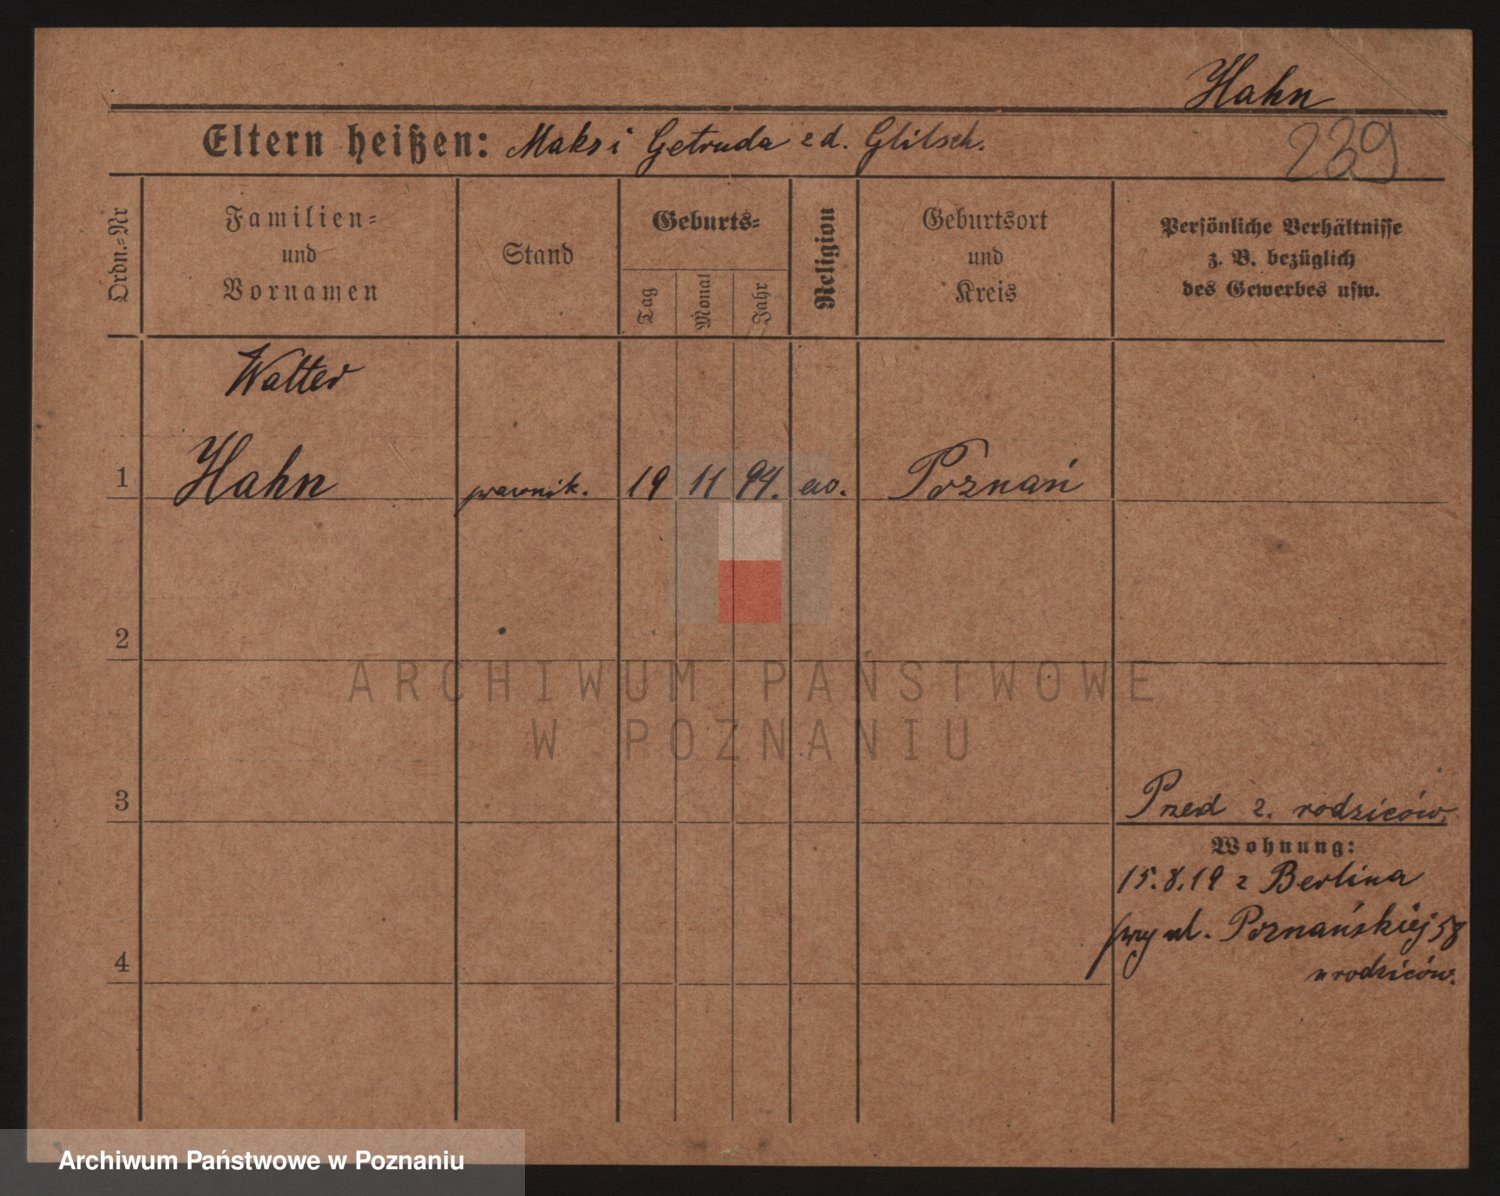 Hahn
239
Eltern heißen: Maks i Getruda zd. Glitsch.
Ordn.=Nr
Familien=
und
Vornamen
Stand
Geburts=
Tag
Monat
Jahr
Religion
Geburtsort
und
Kreis
Persönliche Verhältnisse
z. B. bezüglich
des Gewerbes usw.
Walter
1 Hahn prawnik. 19 11 94. ew. Poznań
2
ARCHIWUM PAŃSTWOWE
W POZNANIU
3
Przed z. rodziców.
Wohnung:
15.8.19 z Berlina
przy ul. Poznańskiej 58
u rodziców.
4
Archiwum Państwowe w Poznaniu